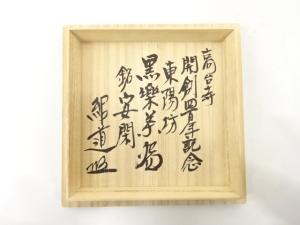 高台寺
開創四百年記念
東陽坊
黒樂茶碗
銘安閑
紹道